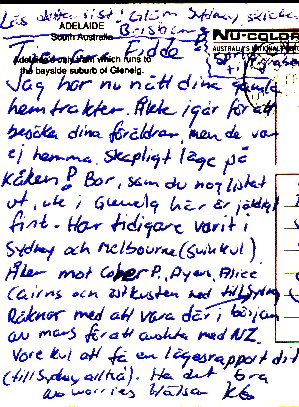 Läs detta sist! Glöm Sydney, skicka
Brisbane
ADELAIDE
South Australia
NU-COLOR
AUSTRALIA'S NATIONAL
which runs to
the bayside suburb of Glenelg.
Jag har nu nått dina gamla
hemtrakter. Åkte igår för att
besöka dina föräldrar men de var
ej hemma. Skapligt läge på
kåken! Bor, som du nog listat
ut, ute i Glenelg här är jävligt
fint. Har tidigare varit i
Sydney och Melbourne (svinkul)
Åker mot Coober P., Ayers, Alice
Cairns och östkusten ned till Sydney
Räknar med att vara där i början
av mars för att avsluta med NZ.
Vore kul att få en lägesrapport dit
(till Sydney alltså). Ha det bra
no worries Hälsn